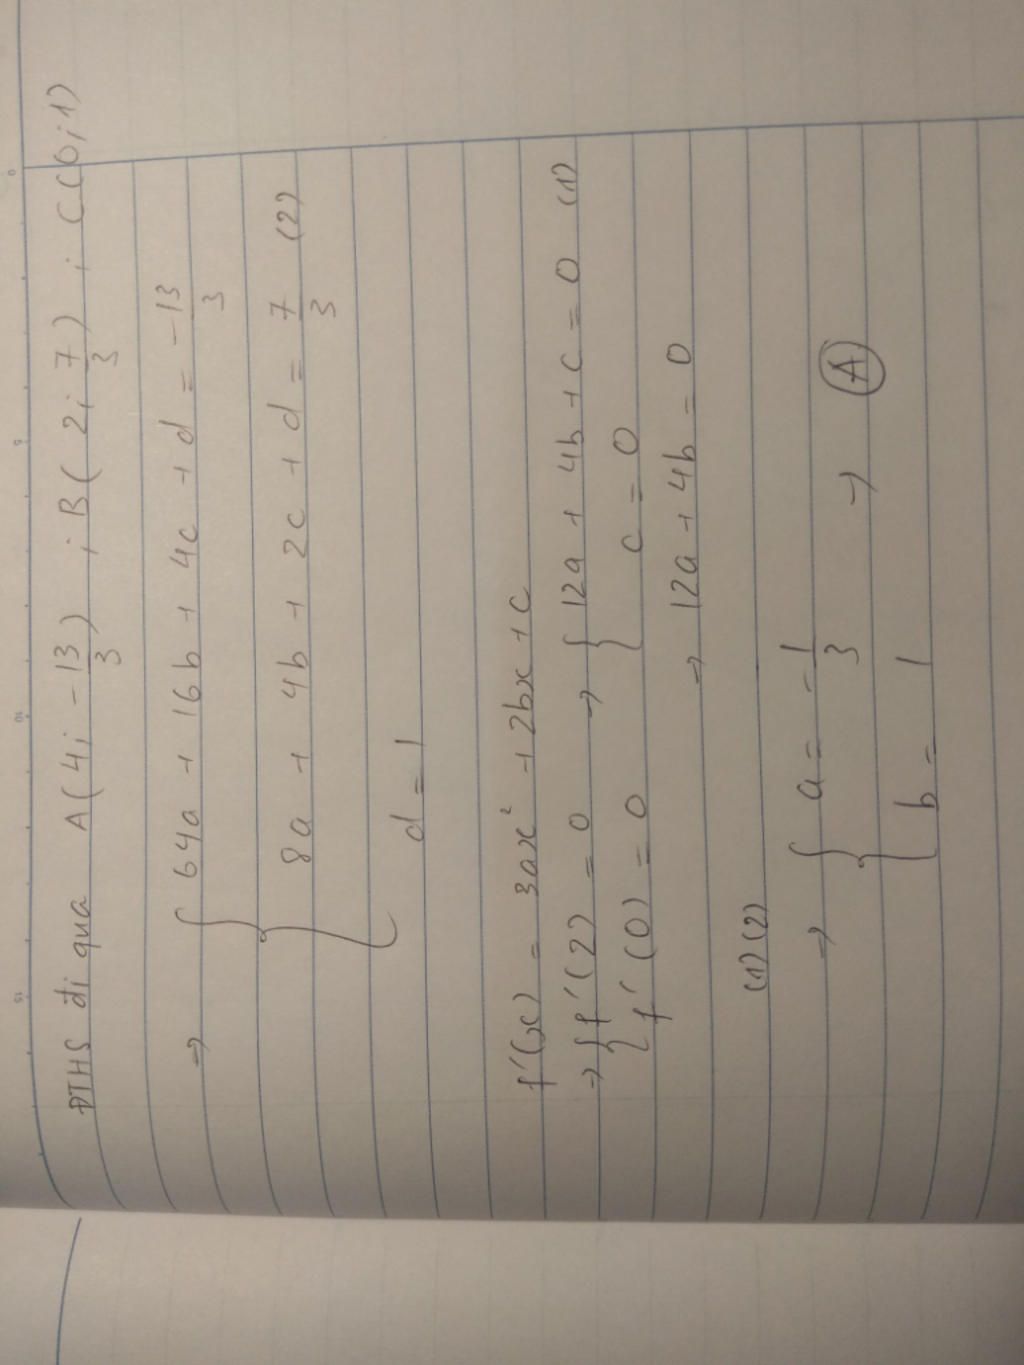 ĐTHS đi qua A(4; -13/3) ; B(2; 7/3) ; C(0;1)
→ { 64a + 16b + 4c + d = -13/3
8a + 4b + 2c + d = 7/3 (2)
d = 1
f'(x) = 3ax² + 2bx + c
→ { f'(2) = 0 → { 12a + 4b + c = 0 (1)
f'(0) = 0 c = 0
→ 12a + 4b = 0
(1)(2)
→ { a = -1/3 → A
b = 1
0
5
10
15